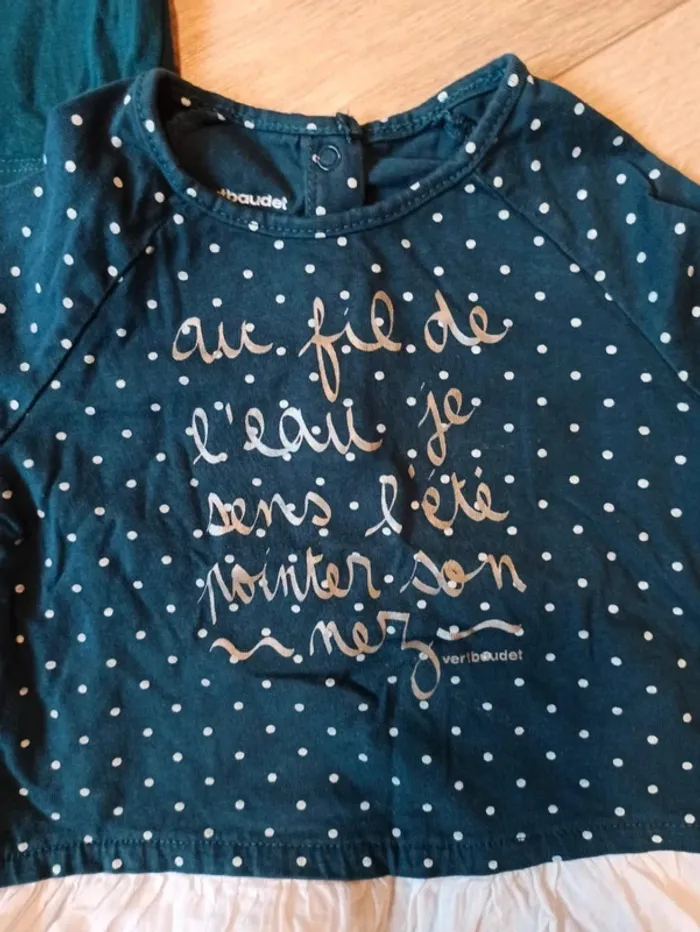 tbaudet
au fil de
l'eau je
sens l'été
pointer son
~ nez ~
vertbaudet